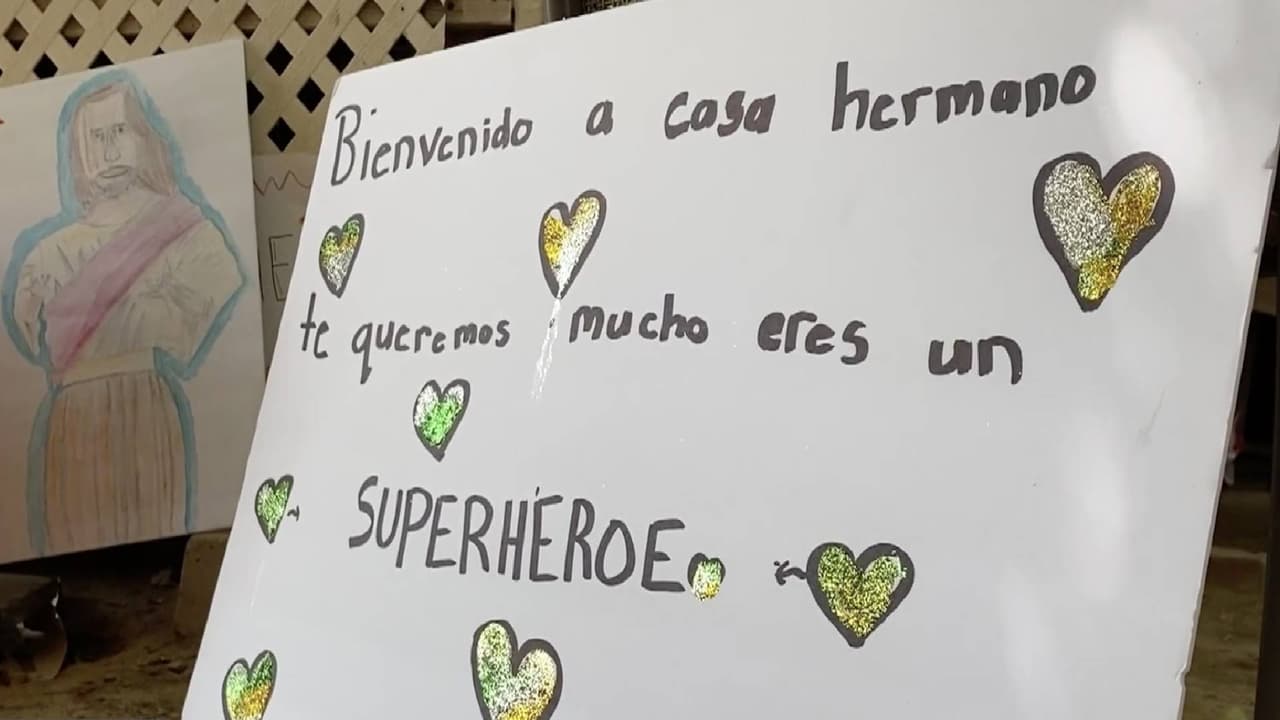 Bienvenido a casa hermano
te queremos mucho eres un
SUPERHÉROE
E